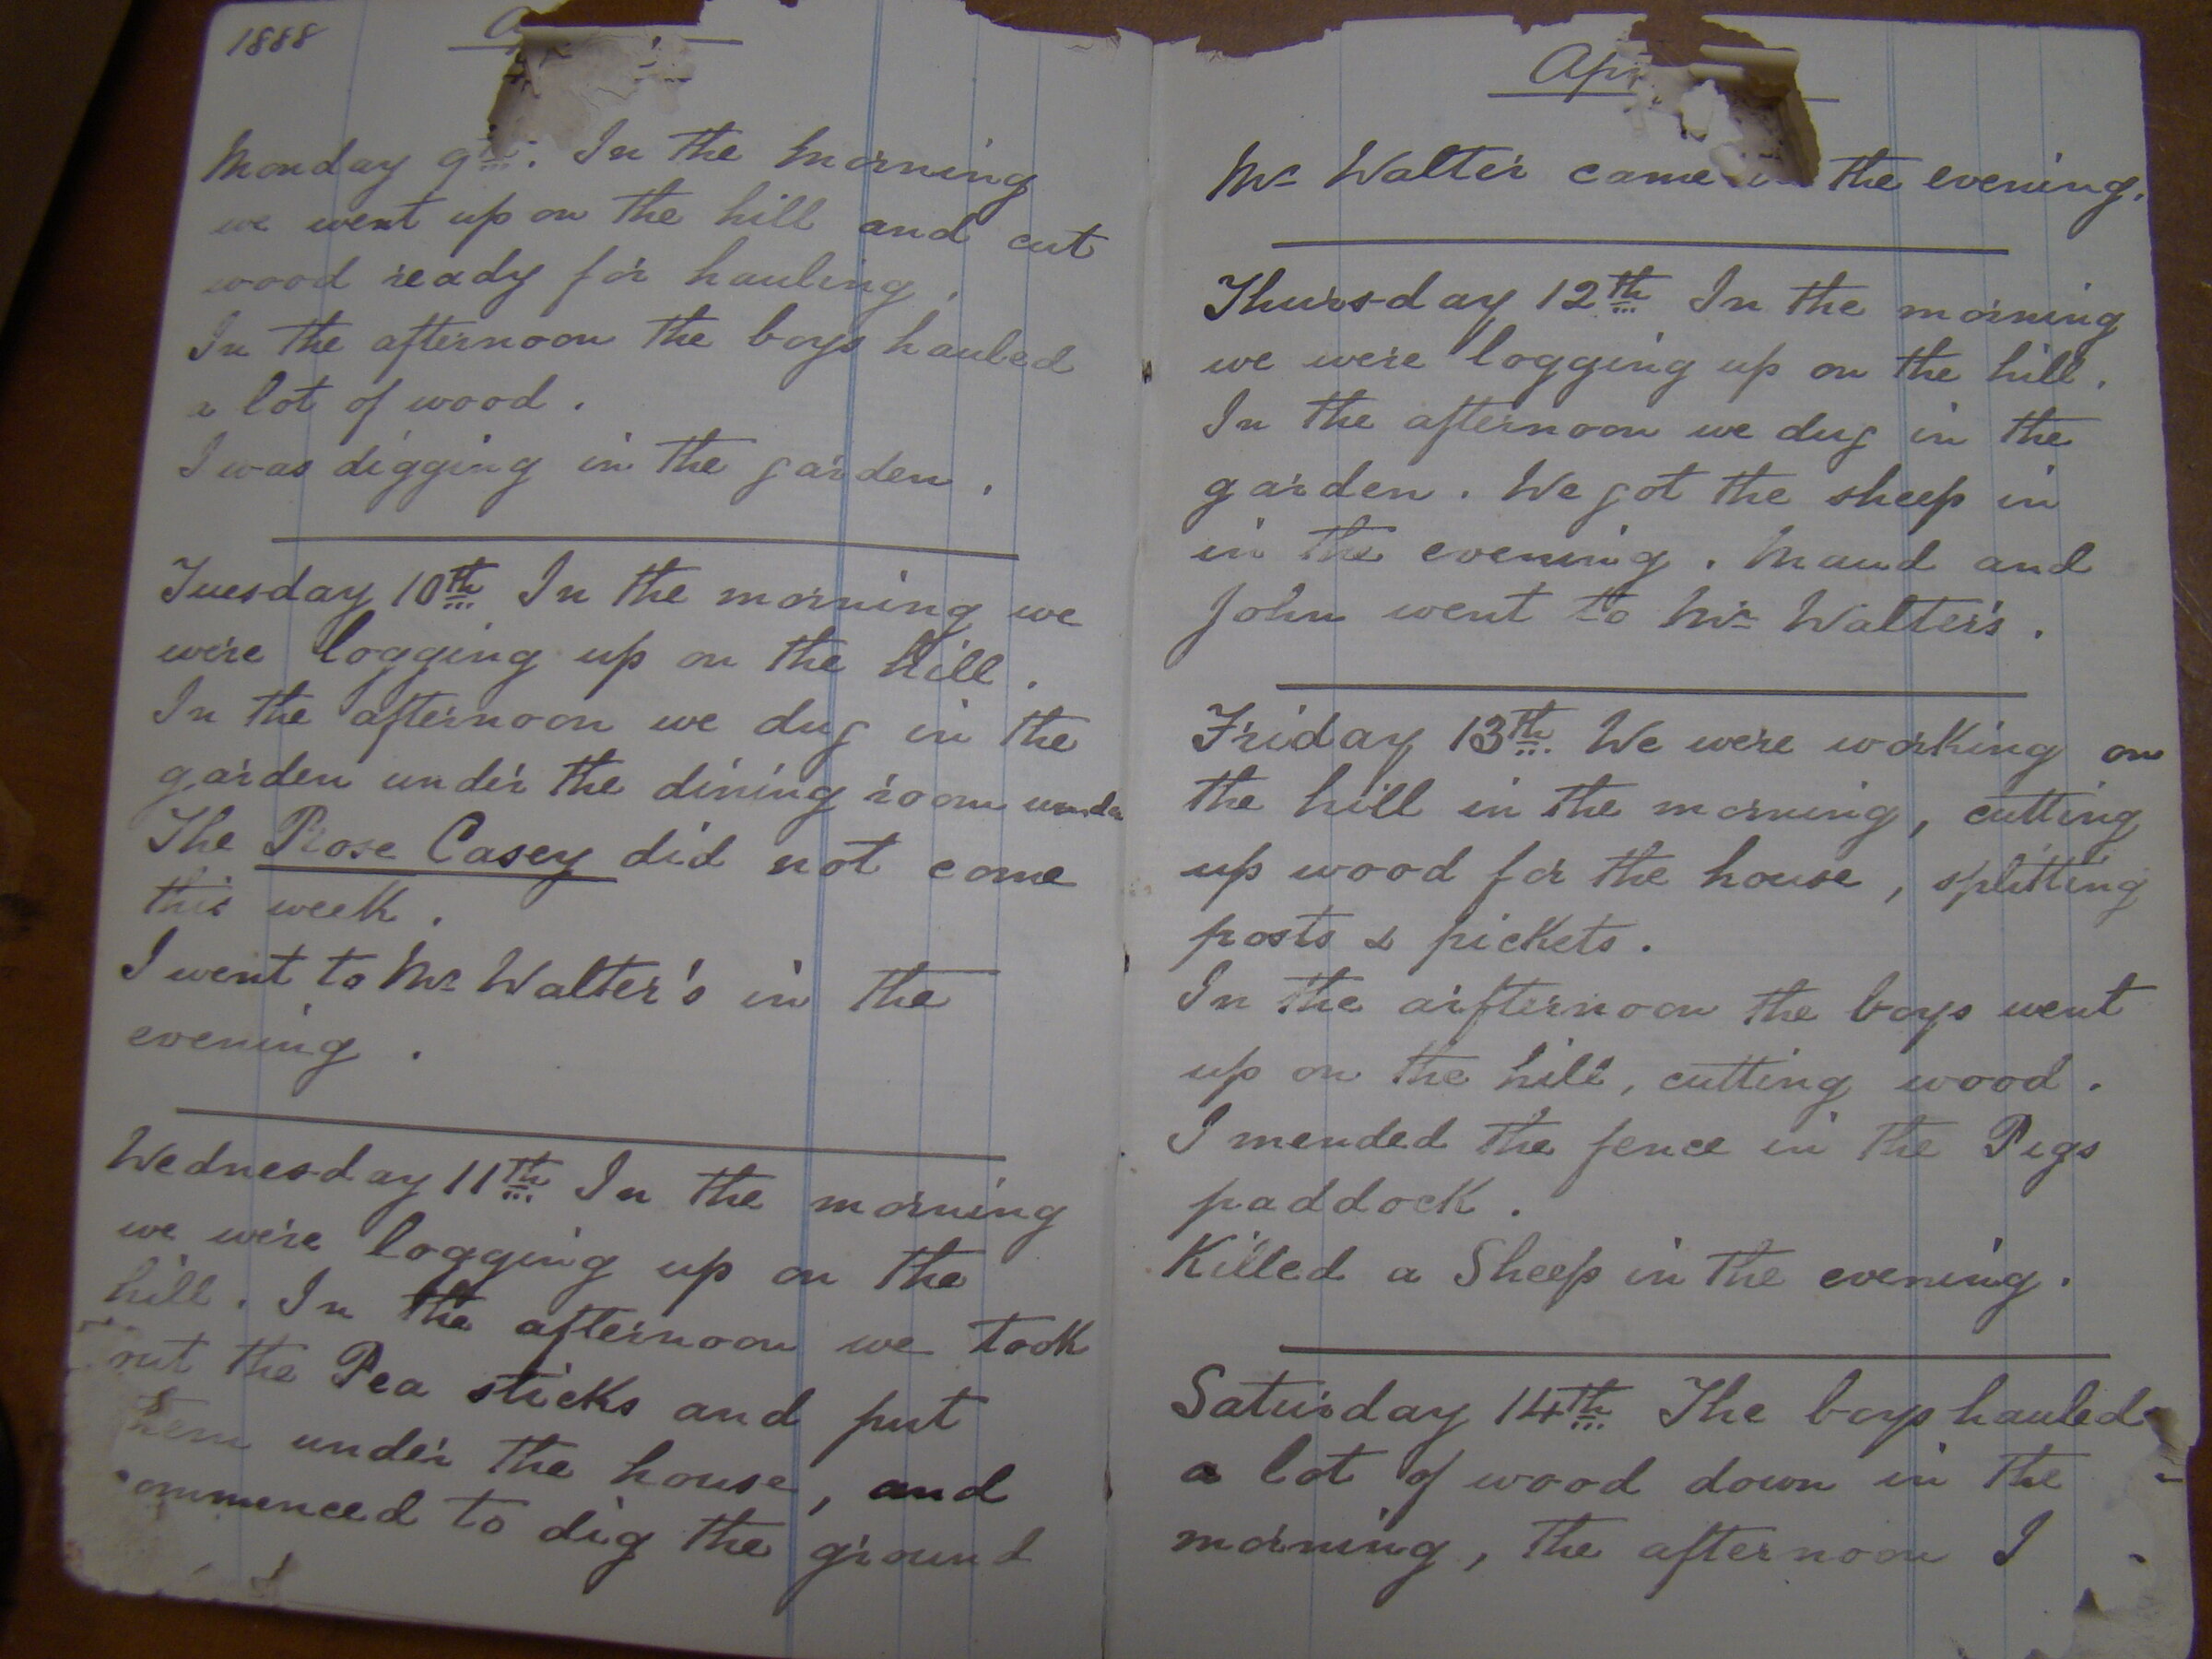 1888
Monday 9th. In the morning
we went up on the hill and cut
wood ready for hauling.
In the afternoon the boys hauled
a lot of wood.
I was digging in the garden.
Tuesday 10th In the morning we
were logging up on the hill.
In the afternoon we dug in the
garden under the dining room
The Rose Casey did not come
this week.
I went to Mr Walter's in the
evening.
Wednesday 11th In the morning
we were logging up on the
hill. In the afternoon we took
out the Pea sticks and put
them under the house, and
commenced to dig the ground
Apr
Mr Walter came in the evening.
Thursday 12th In the morning
we were logging up on the hill.
In the afternoon we dug in the
garden. We got the sheep in
in the evening. Maud and
John went to Mr Walter's.
Friday 13th We were working on
the hill in the morning, cutting
up wood for the house, splitting
posts & pickets.
In the airfternoon the boys went
up on the hill, cutting wood.
I mended the fence in the Pigs
paddock.
Killed a Sheep in the evening.
Saturday 14th The boys hauled
a lot of wood down in the
morning, the afternoon I